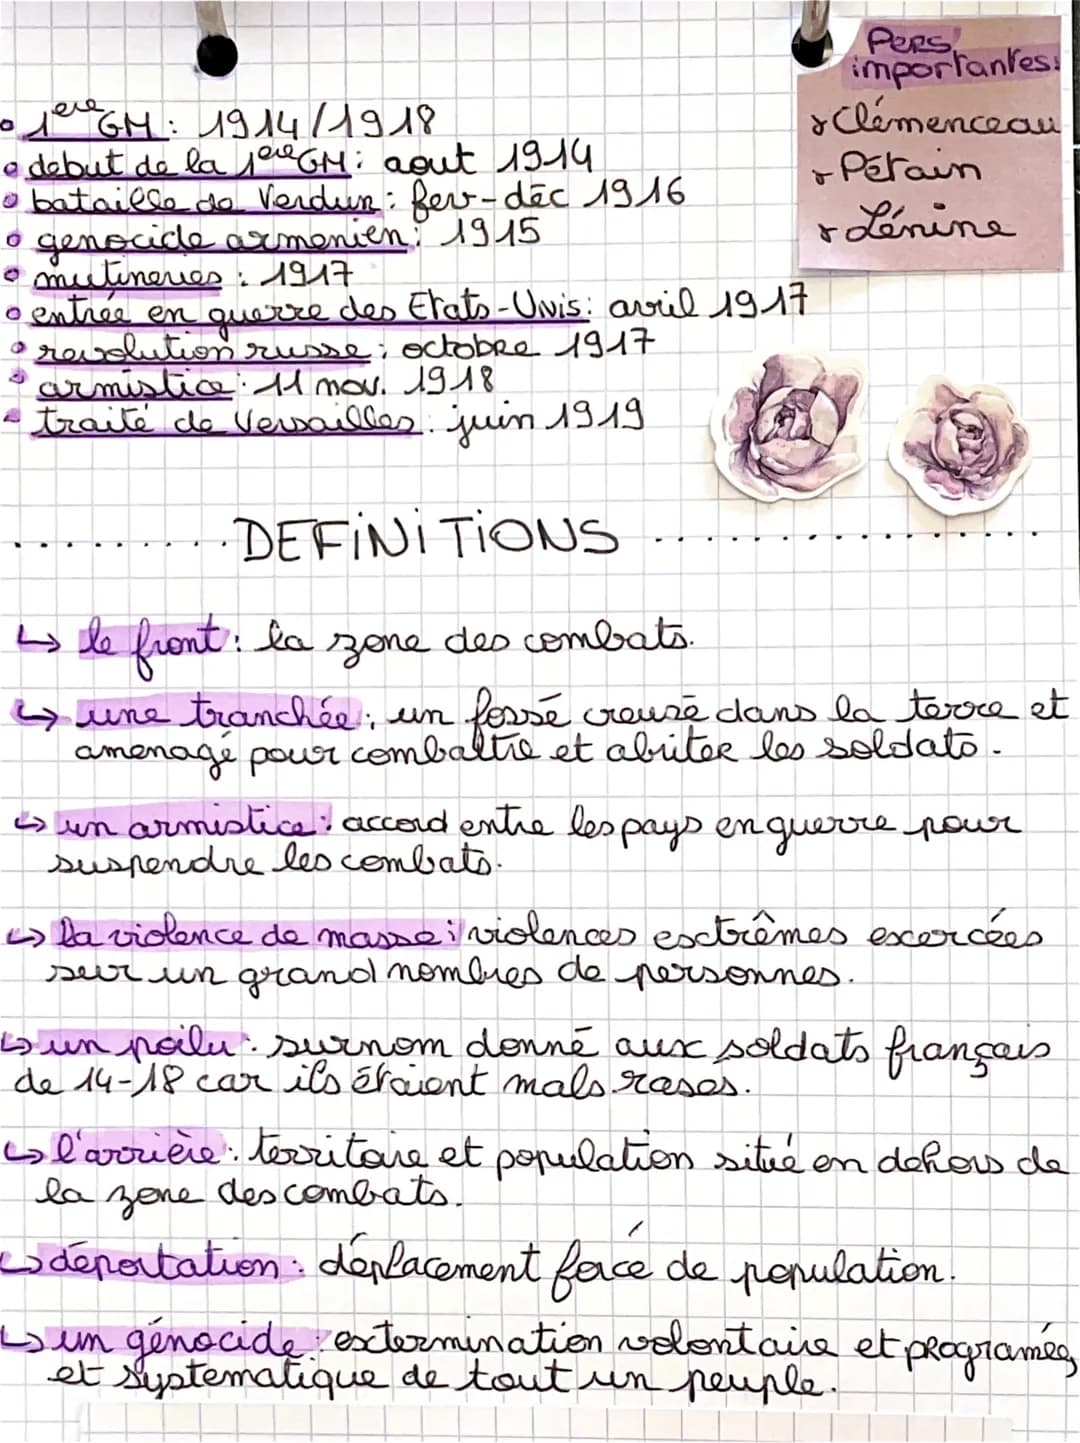 Pers importantes:
Clémenceau
Pétain
Lénine
1ere GM : 1914/1918
debut de la 1ere GM : aout 1914
bataille de Verdun : fev-déc 1916
genocide armenien : 1915
mutineries : 1917
entrée en guerre des Etats-Unis : avril 1917
revolution russe : octobre 1917
armistice : 11 nov. 1918
traité de Versailles : juin 1919
DEFINITIONS
↳ le front : la zone des combats.
↳ une tranchée : un fossé creusé dans la terre et
amenagé pour combattre et abriter les soldats.
↳ un armistice : accord entre les pays en guerre pour
suspendre les combats.
↳ la violence de masse : violences extrêmes exercées
sur un grand nombres de personnes.
↳ un poilu : surnom donné aux soldats français
de 14-18 car ils étaient mals rases.
↳ l'arrière : territoire et population situé en dehors de
la zone des combats.
↳ déportation : déplacement forcé de population.
↳ un génocide : extermination volontaire et programée,
et systematique de tout un peuple.